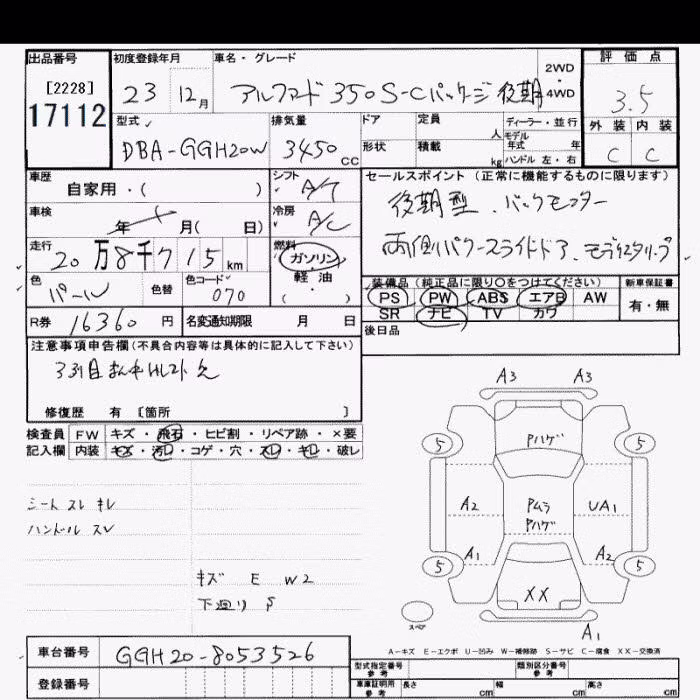 出品番号 初度登録年月 車名・グレード 2WD・4WD 評価点
[2228]
17112
23 12月 アルファード 350S-Cパッケージ 後期 3.5
型式 排気量 ドア 定員 人 ディーラー・並行 外装 内装
DBA-GGH20W 3450cc 形状 積載 kg モデル年式 年 ハンドル 左・右 C C
車歴 自家用・( ) シフト A/T セールスポイント (正常に機能するものに限ります)
車検 年 月( 日) 冷房 A/C 後期型、バックモニター
走行 20万8千715km 燃料 ガソリン 軽・油 ( ) 両側パワースライドドア、モデリスタリップ
色 パール 色替 色コード 070 装備品(純正品に限り○をつけてください) 新車保証書
PS PW ABS エアB AW 有・無
SR ナビ TV カワ
R券 16360円 名変通知期限 月 日 後日品
注意事項申告欄(不具合内容等は具体的に記入して下さい)
3列目
修復歴 有 [箇所 ]
検査員 FW キズ・飛石・ヒビ割・リペア跡・×要
記入欄 内装 キズ・汚レ・コゲ・穴・スレ・キレ・破レ
シート スレ キレ
ハンドル スレ
キズ E W2
下廻り S
A3 A3
5 Pハゲ 5
A2 Pムラ UA1
Pハゲ
A1 A2
5 XX 5
スペア
A1
A-キズ E-エクボ U-凹み W-補修跡 S-サビ C-腐食 XX-交換済
車台番号 GGH20-8053526
登録番号
型式指定番号 参考 類別区分番号 参考
車庫証明用 参考 長さ cm 幅 cm 高さ cm